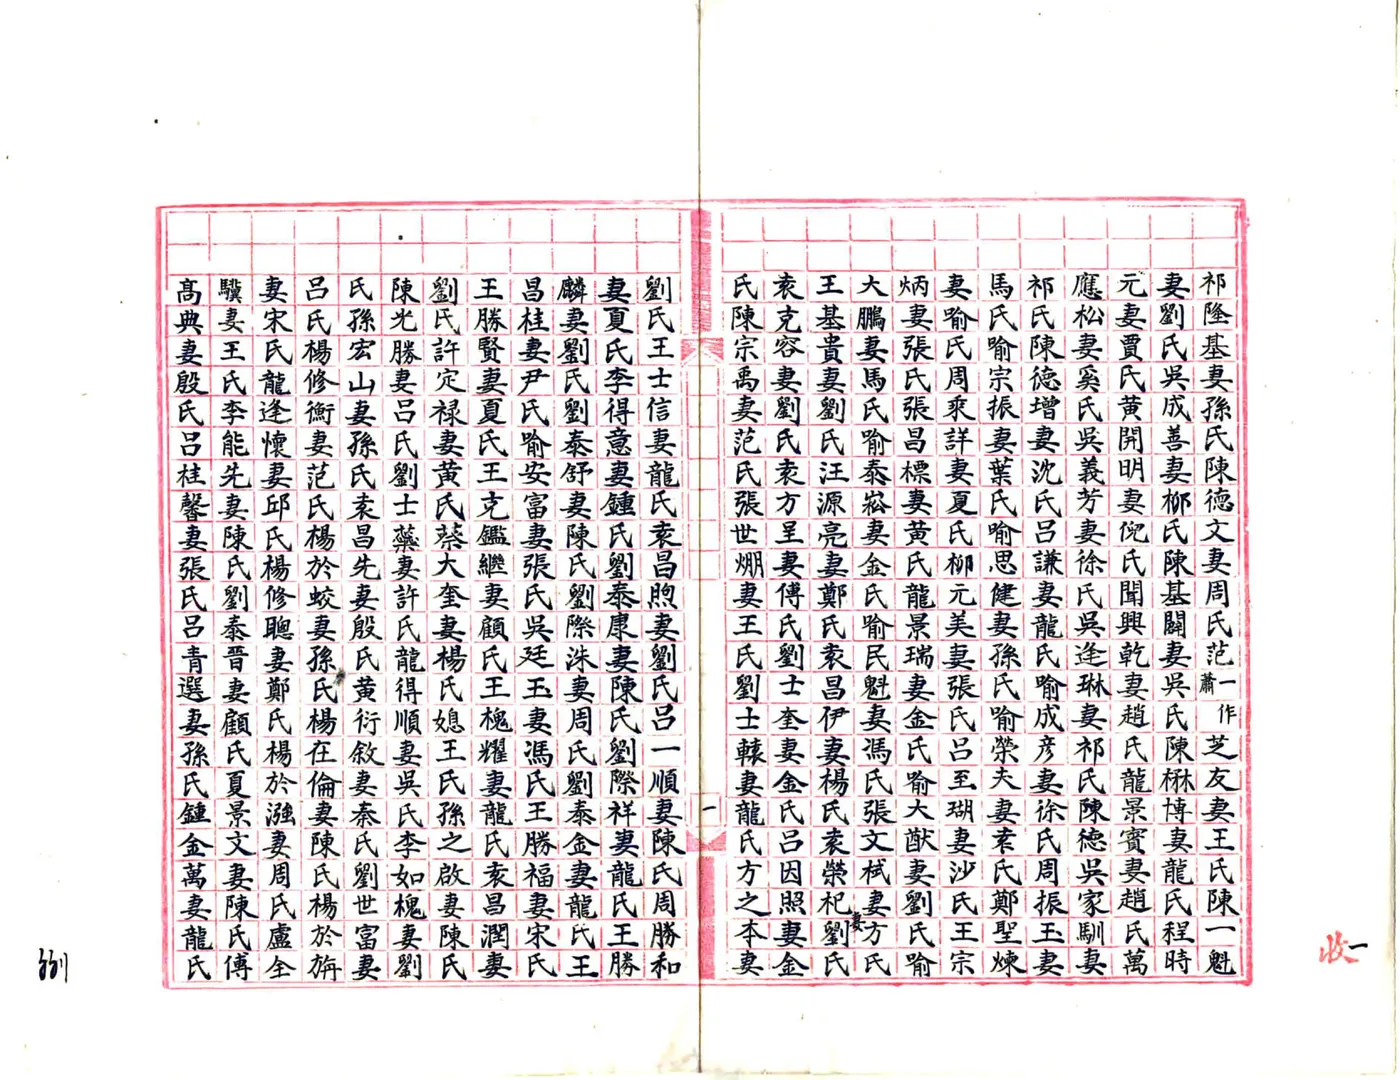 祁隆基妻孫氏陳德文妻周氏范一作蕭芝友妻王氏陳一魁
妻劉氏吳成善妻柳氏陳基闢妻吳氏陳楙博妻龍氏程時
元妻賈氏黃開明妻倪氏聞興乾妻趙氏龍景賓妻趙氏萬
應松妻奚氏吳義芳妻徐氏吳逢琳妻祁氏陳德吳家馴妻
祁氏陳德增妻沈氏呂謙妻龍氏喻成彥妻徐氏周振玉妻
馬氏喻宗振妻葉氏喻思健妻孫氏喻榮夫妻袁氏鄭聖煉
妻喻氏周乘詳妻夏氏柳元美妻張氏呂至瑚妻沙氏王宗
炳妻張氏張昌標妻黃氏龍景瑞妻金氏喻大猷妻劉氏喻
大鵬妻馬氏喻泰崧妻金氏喻民魁妻馮氏張文栻妻方氏
王基貴妻劉氏汪源亮妻鄭氏袁昌伊妻楊氏袁榮杞妻劉氏
袁克容妻劉氏袁方呈妻傅氏劉士奎妻金氏呂因照妻金
氏陳宗禹妻范氏張世焩妻王氏劉士轅妻龍氏方之本妻
一
劉氏王士信妻龍氏袁昌煦妻劉氏呂一順妻陳氏周勝和
妻夏氏李得意妻鍾氏劉泰康妻陳氏劉際祥妻龍氏王勝
麟妻劉氏劉泰舒妻陳氏劉際洙妻周氏劉泰金妻龍氏王
昌桂妻尹氏喻安富妻張氏吳廷玉妻馮氏王勝福妻宋氏
王勝賢妻夏氏王克鑑繼妻顧氏王槐耀妻龍氏袁昌潤妻
劉氏許定祿妻黃氏蔡大奎妻楊氏媳王氏孫之啟妻陳氏
陳光勝妻呂氏劉士藥妻許氏龍得順妻吳氏李如槐妻劉
氏孫宏山妻孫氏袁昌先妻殷氏黃衍敘妻秦氏劉世富妻
呂氏楊修衡妻范氏楊於蛟妻孫氏楊在倫妻陳氏楊於旃
妻宋氏龍逢懷妻邱氏楊修聰妻鄭氏楊於漒妻周氏盧全
驥妻王氏李能先妻陳氏劉泰晉妻顧氏夏景文妻陳氏傅
高典妻殷氏呂桂馨妻張氏呂青選妻孫氏鍾金萬妻龍氏
收一